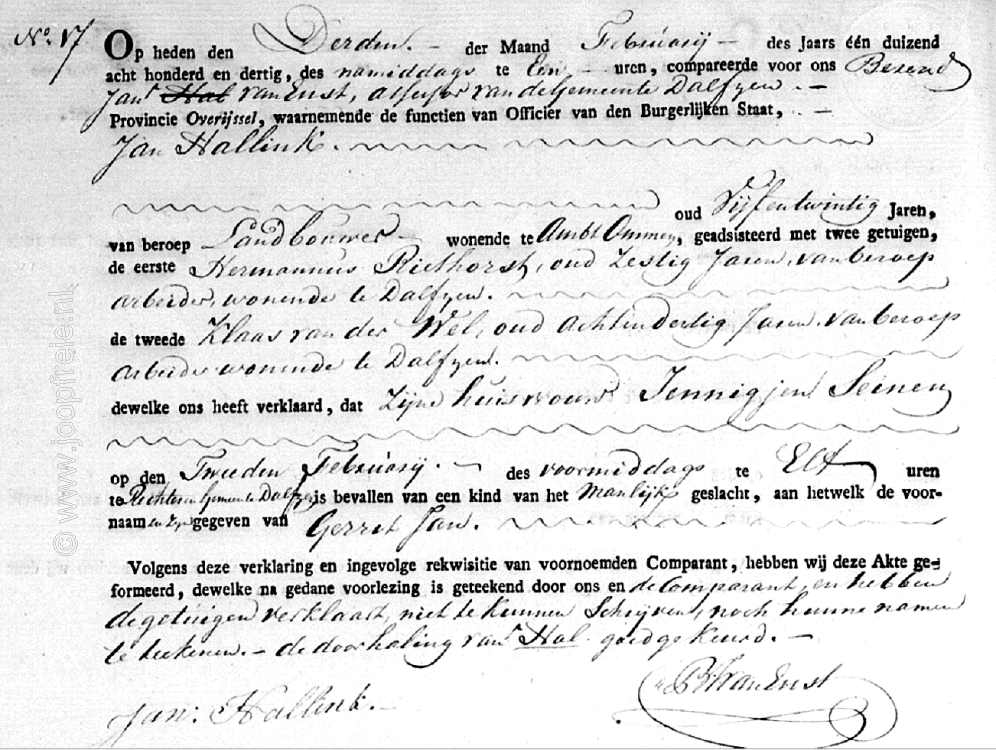 No. 17
Op heden den Derden. der Maand Februarij des Jaars één duizend
acht honderd en dertig, des namiddags te Een uren, compareerde voor ons Berend
Jan Hal van Enst, assessor van de Gemeente Dalfzen.
Provincie Overijssel, waarnemende de functien van Officier van den Burgerlijken Staat,
Jan Hallink.
oud Vijfentwintig Jaren,
van beroep Landbouwer wonende te Ambt Ommen, geadsisteerd met twee getuigen,
de eerste Hermannus Riethorst, oud Zestig Jaren, van beroep
arbeider, wonende te Dalfzen.
de tweede Klaas van der Wel, oud achtendertig Jaren. van beroep
arbeider wonende te Dalfzen.
dewelke ons heeft verklaard, dat Zijne huisvrouw Jennigjen Seinen
op den Tweeden Februarij. des voormiddags te Elf uren
te Rechteren Gemeente Dalfzen is bevallen van een kind van het Manlijk geslacht, aan hetwelk de voor-
naam en zijn gegeven van Gerret Jan.
Volgens deze verklaring en ingevolge rekwisitie van voornoemden Comparant, hebben wij deze Akte ge-
formeerd, dewelke na gedane voorlezing is geteekend door ons en de Comparant, en hebben
de getuigen verklaart niet te kunnen Schrijven, noch hunne namen
te teekenen. de doorhaling van Hal goedgekeurd.
Jan: Hallink.
BJ van Enst
© www.jooptele.nl